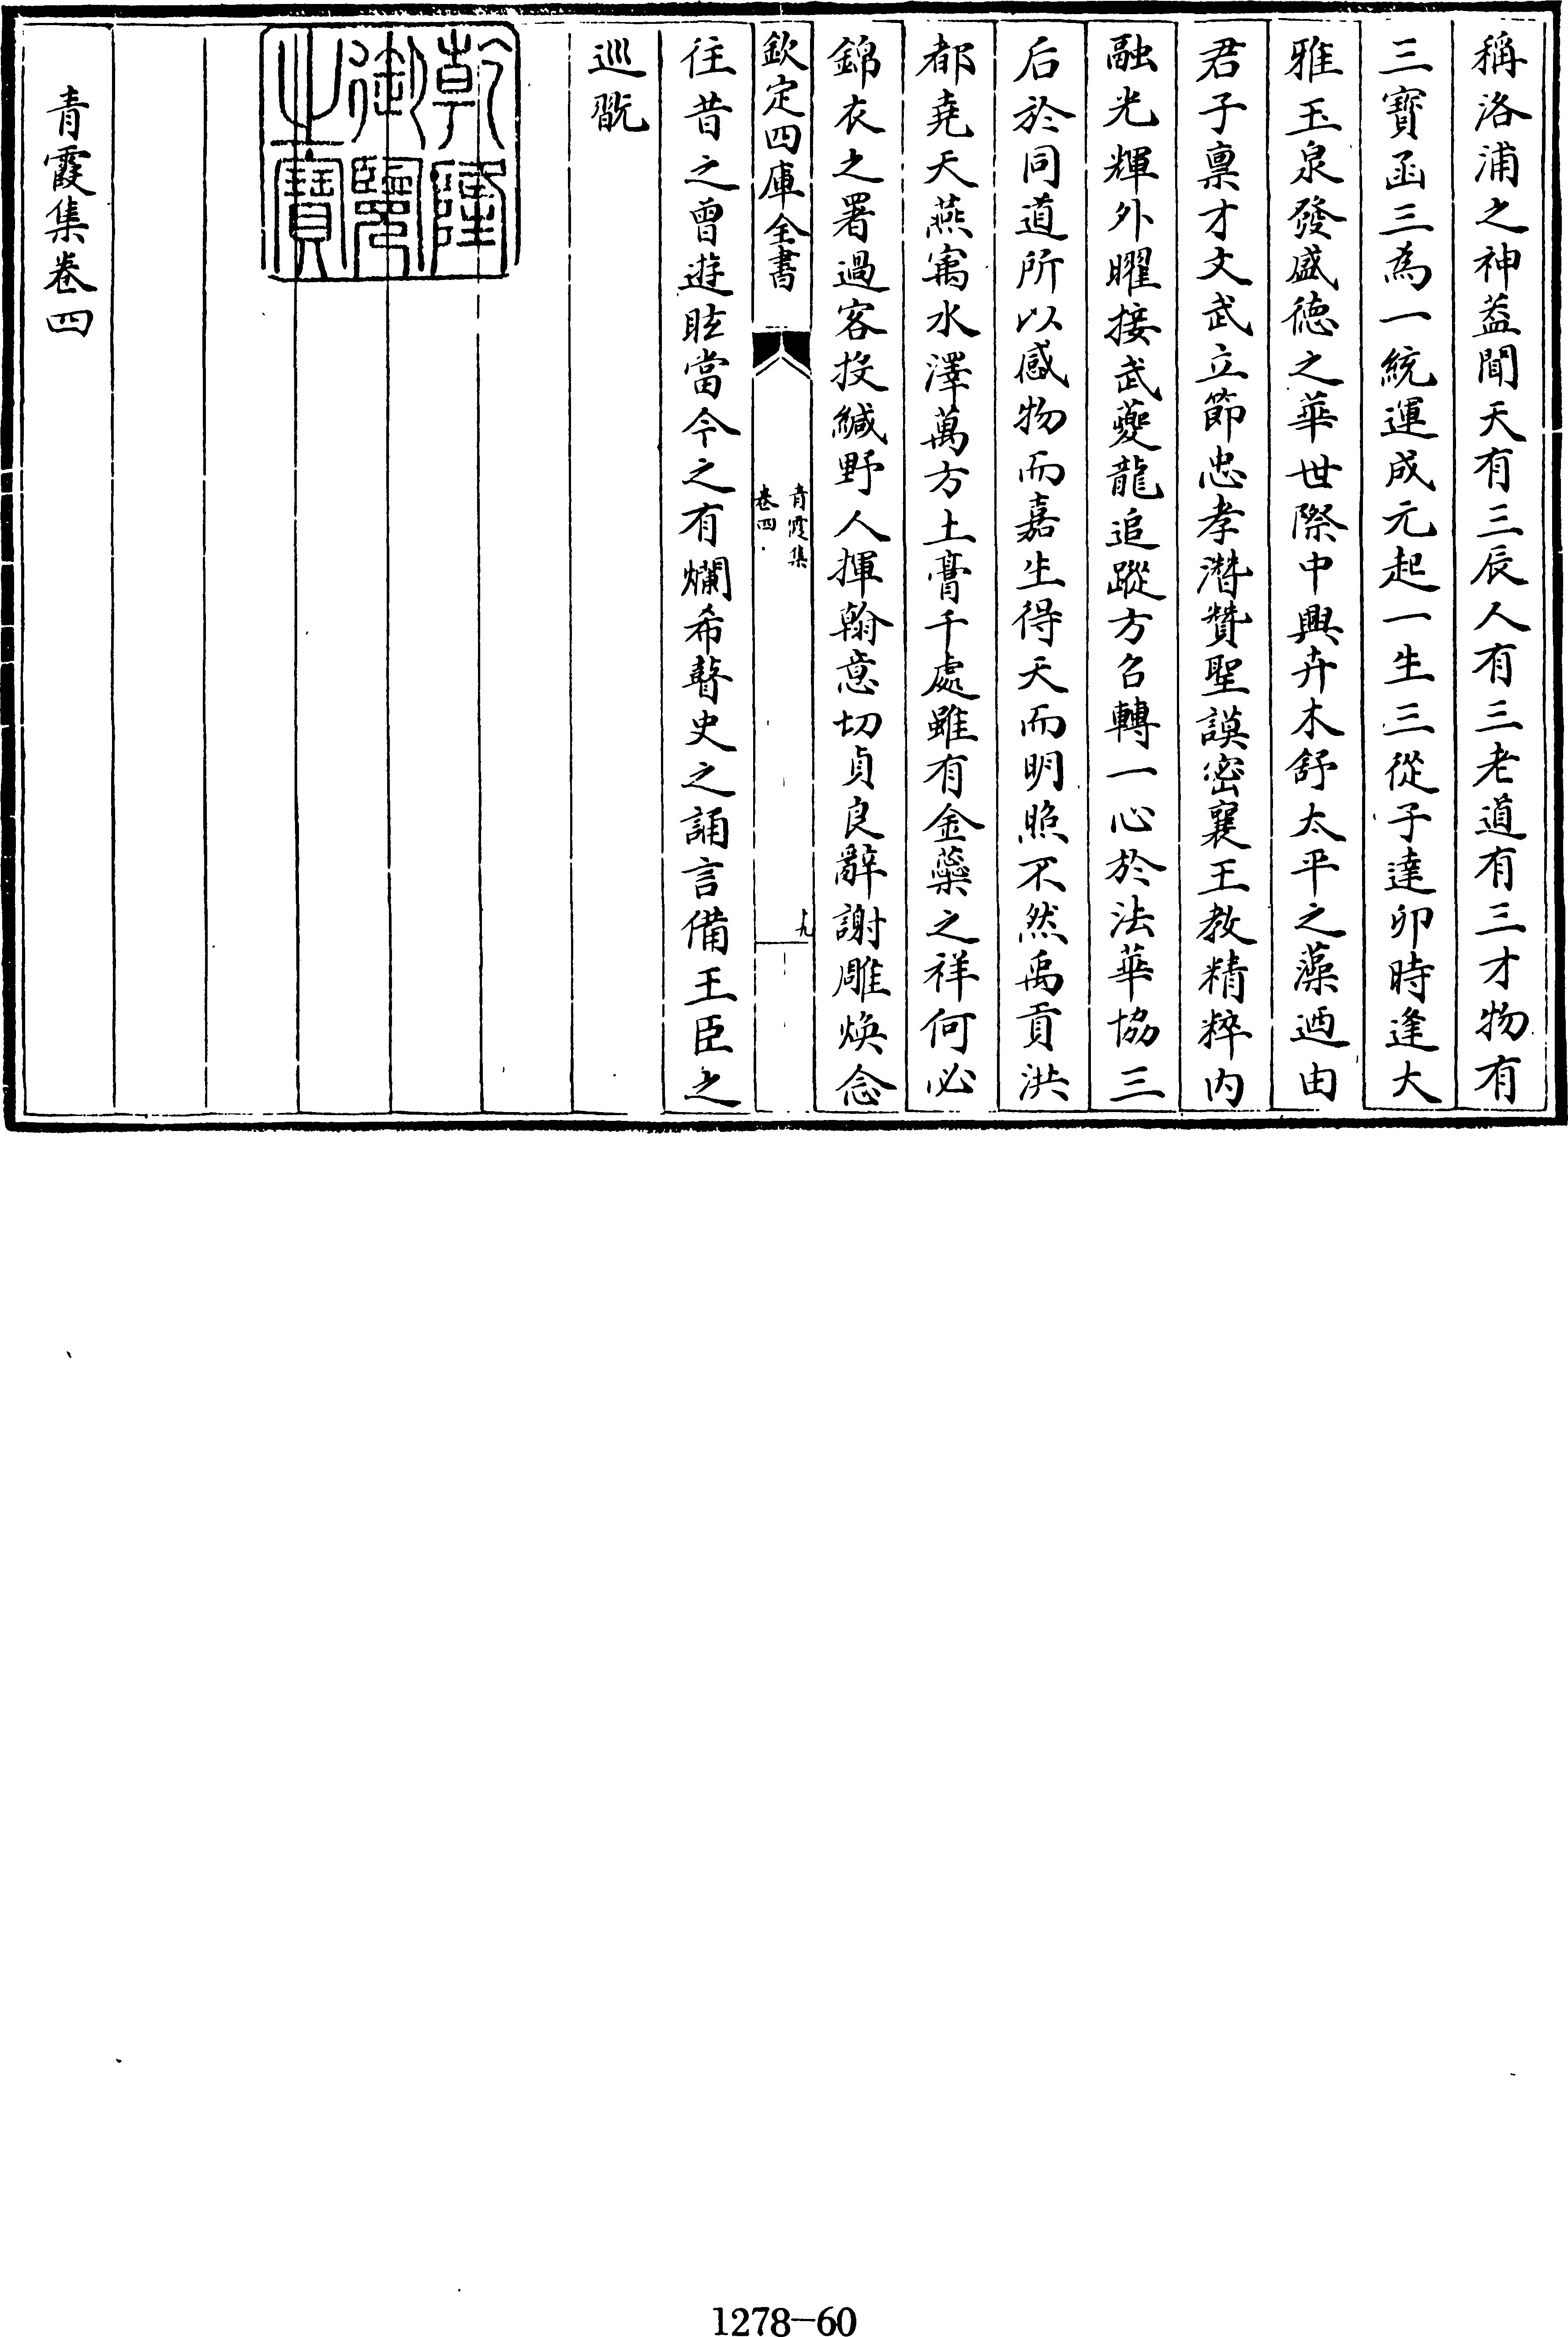 稱洛浦之神葢聞天有三辰人有三老道有三才物有
三寶函三為一統運成元起一生三從子達卯時逢大
雅玉泉發盛德之華世際中興卉木舒太平之藻迺由
君子禀才文武立節忠孝潛贊聖謨密襄王教精粹内
融光輝外曜接武夔龍追蹤方召轉一心於法華協三
后於同道所以感物而嘉生得天而明照不然禹貢洪
都堯天燕寓水澤萬方土膏千處雖有金蘂之祥何必
錦衣之署過客投緘野人揮翰意切貞良辭謝雕煥念
欽定四庫全書
青霞集
卷四
十九
往昔之曾遊眩當今之有爛希瞽史之誦言備王臣之
巡翫
乾隆
御覽
之寶
青霞集卷四
1278-60